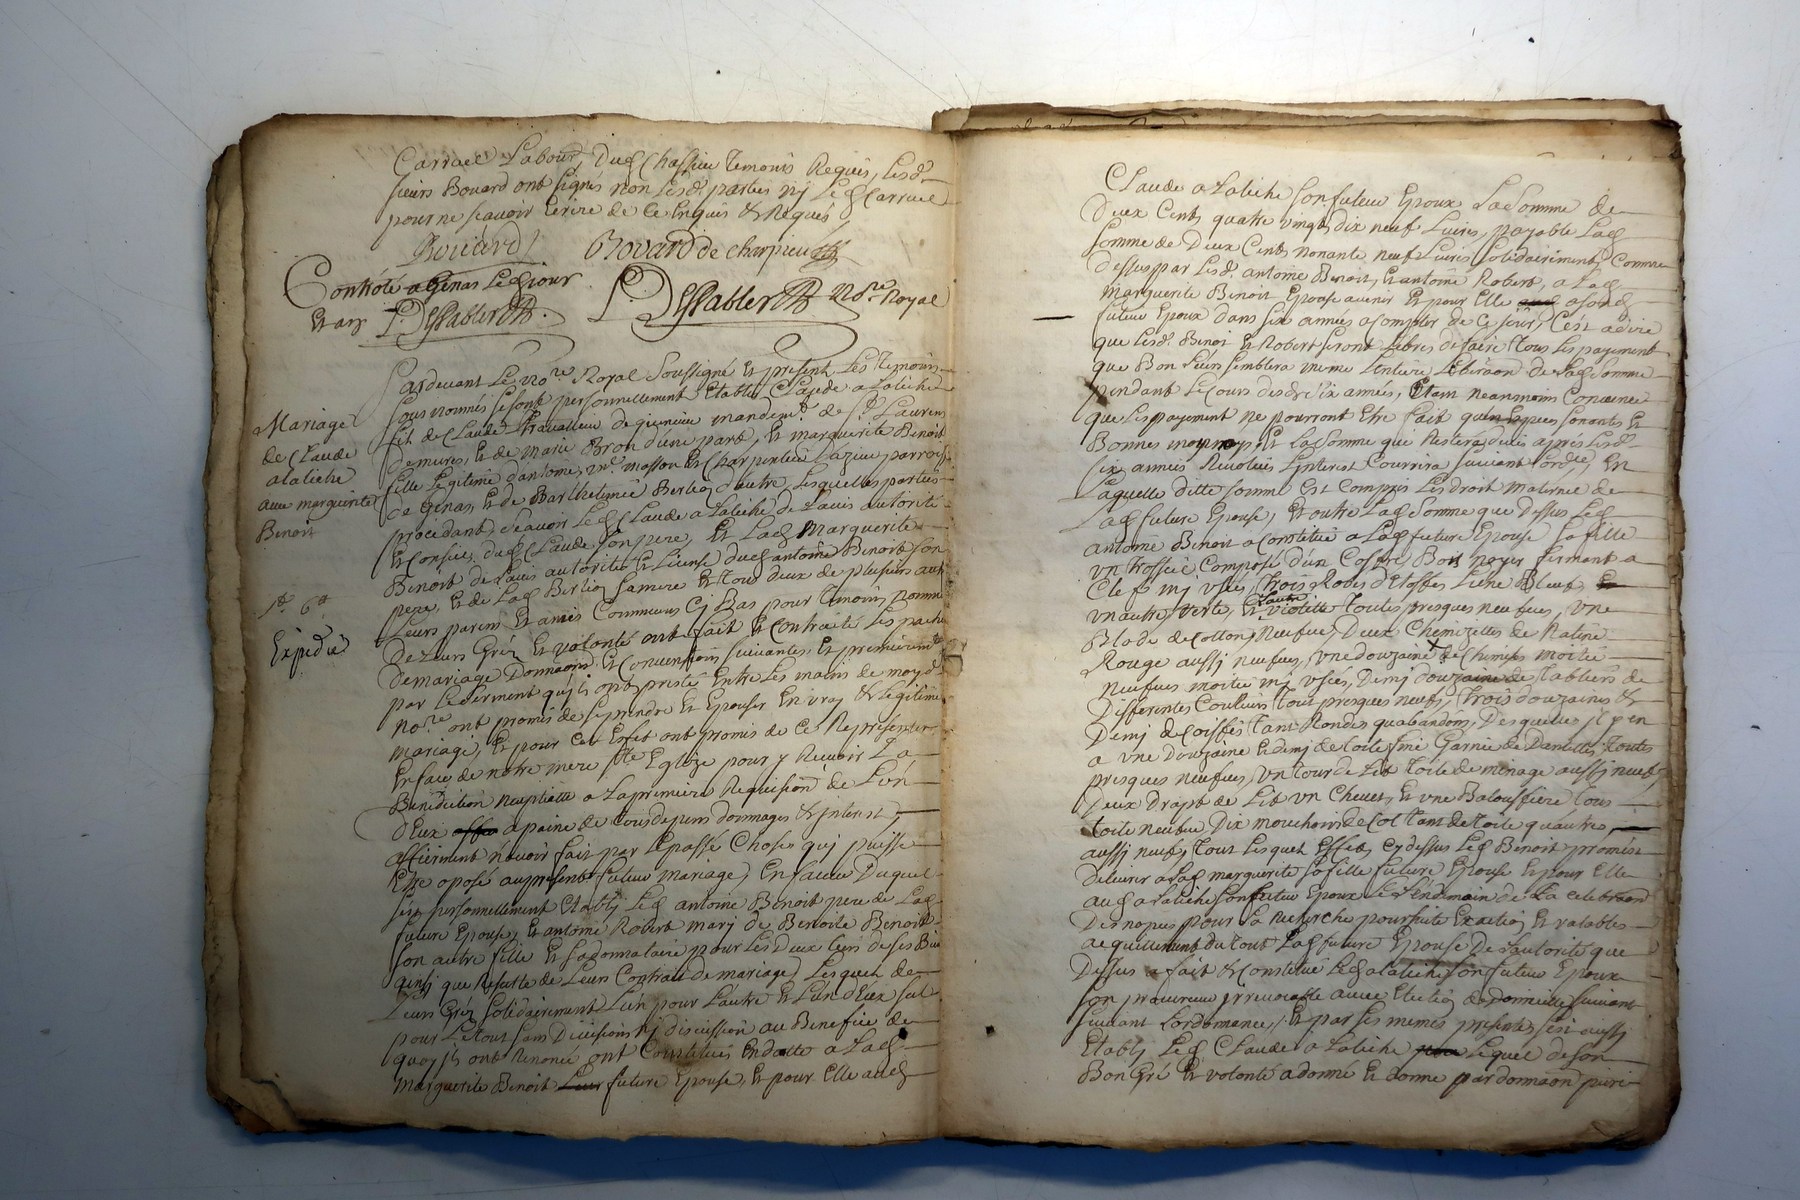 Carruel Labour, dud Chassieu temoins Requis, Lesd.
sieurs Bouard ont signés non lesd. parties nj Led Carruel
pour ne sçavoir Ecrire de ce Enquis & Requis
Bouard Bouard de Charpieu
Contrôlé a Genas Led jour
Et an P. Dessabler P. Dessabler No.re Royal
Pardevant Le No.re Royal Soussigné Et present Les temoins
sous nommés se sont personnellement Etablis Claude a Latiche
fils de Claude travailleur de mandem.t de S.t Laurens
demures, Et de Marie Bron d'une part, Et marguerite Benoit
fille Legitime d'antoine, m.e masson Et Charpentier parrois
de Genas, Et de Barthelemie Berlioz d'autre, Lesquelles parties
procedant, sçavoir Led Claude a Latiche de L'avis autorité
Et Conseil dud Claude son pere, Et Lad Marguerite
Benoit de L'avis autorité Et License dud antoine Benoit son
pere, Et de Lad Berlioz sa mere Et tous deux de plusieurs autr
Leurs parens Et amis Communs Cj Bas pour temoins nommé
De Leurs Gréz Et volonté ont fait Et Contracté les pache
de mariage Donnaõns Et Conventions suivantes Et premierem.t
par Le serment qu'ils ont presté Entre Les mains de moyd.
No.re ont promis de se prendre Et Epouser En vray & Legitime
mariage, Et pour Cet Effet ont promis de ce Representer
En face de notre mere S.te Eglize pour y Recevoir La
Benediction Nuptialle a La premiere Requision de L'un
d'Eux a paine de tous depens dommages & jnterest,
affirment n'avoir fait par Le passé Choses qui puisse
Etre oposé au present futeur mariage) En faveur Duquel
s'est personnellement Etablj Led antoine Benoit pere de Lad
future Epouse, Et antoine Robert marj de Benoite Benoit
son autre fille Et sa donnataire pour Les deux tiers de ses Bie
ainsj que Resulte de Leurs Contrat de mariage) Lesquels de
Leurs Gréz solidairement L'un pour L'autre Et L'un d'Eux seul
pour Le tout sans Division nj discussion au Benefice de
quoy jls ont Renoncé ont Constitués En dotte a Lad
Marguerite Benoit future Epouse, Et pour Elle aud
Mariage
de Claude
a latiche
avec marguerite
Benoit
Expedié
Claude a Latiche son futeur Epoux La somme de
Deux Cents quatre vingts dix neuf Livres, payable Lad
somme de Deux Cents Nonante neuf Livres solidairement Comme
dessus par Lesd. antoine Benoit, Et antoine Robert, a Lad
Marguerite Benoit Epouse avenir Et pour Elle a sond
futeur Epoux dans six années a Compter de Ce jour, C'est a dire
que Lesd. Benoit Et Robert seront Libres de faire tous Les payement
que Bon Leur semblera meme L'entiere Liberaõn de Lad somme
pendant Le Cours desd. six années, Etant neanmoins Convenu
que Les payement ne pourront Etre fait qu'en Especes sonantes Et
Bonnes monnoys Et La somme qui Restera duë aprés Lesd.
six années Revolües L'interest Courrira suivant L'ord.ce, En
Laquelle ditte somme Est Compris Les droit Maternel de
Lad future Epouse, Et outre Lad somme que dessus Led
antoine Benoit a Constitué a Lad future Epouse sa fille
un trossel Composé d'un Coffre Bois noyer fermant a
Clef mj usés, trois Robes d'Etoffes L'une Bleuf,
une autre verte, Et L'autre violette toutes presques neufues, une
Blode de Cotton Neufue, Deux Chemizettes de Ratine
Rouge aussj neufues, une douzaine de Chemises moitié
neufues moitié mj usées, Demj douzaine de tabliers de
Differentes Couleurs tous presques neufs, trois douzaines &
Demj de Coiffes tant Rondes qu'abandons, Desquelles jl y en
a une Douzaine Et demj de toile fine Garnie de Dantelles toutes
presques neufues, un tour de Lit toile de menage aussj neuf,
Deux draps de Lit un Chevet, Et une Balouffiere tous
toile neufue Dix mouchoirs de Col tant de toile qu'autres,
aussj neufs, tout Lesquels Effets Cy dessus Led Benoit promet
delivrer a Lad marguerite sa fille future Epouse Et pour Elle
aud a Latiche son futeur Epoux Le Lendemain de La Celebraõn
Des nopces pour La Recherche poursuite Exaction Et valables
acquittement du tout Lad future Epouse De L'autorité que
Dessus a fait & Constitué Led a Latiche son futeur Epoux
son procureur jrrevocable avec Election de domicille suivant
suivant L'ordonnance,/. Et par Ces memes presentes s'est aussj
Etablj Led Claude a Latiche Lequel de son
Bon Gré Et volonté a donné Et donne par donnaõn pure